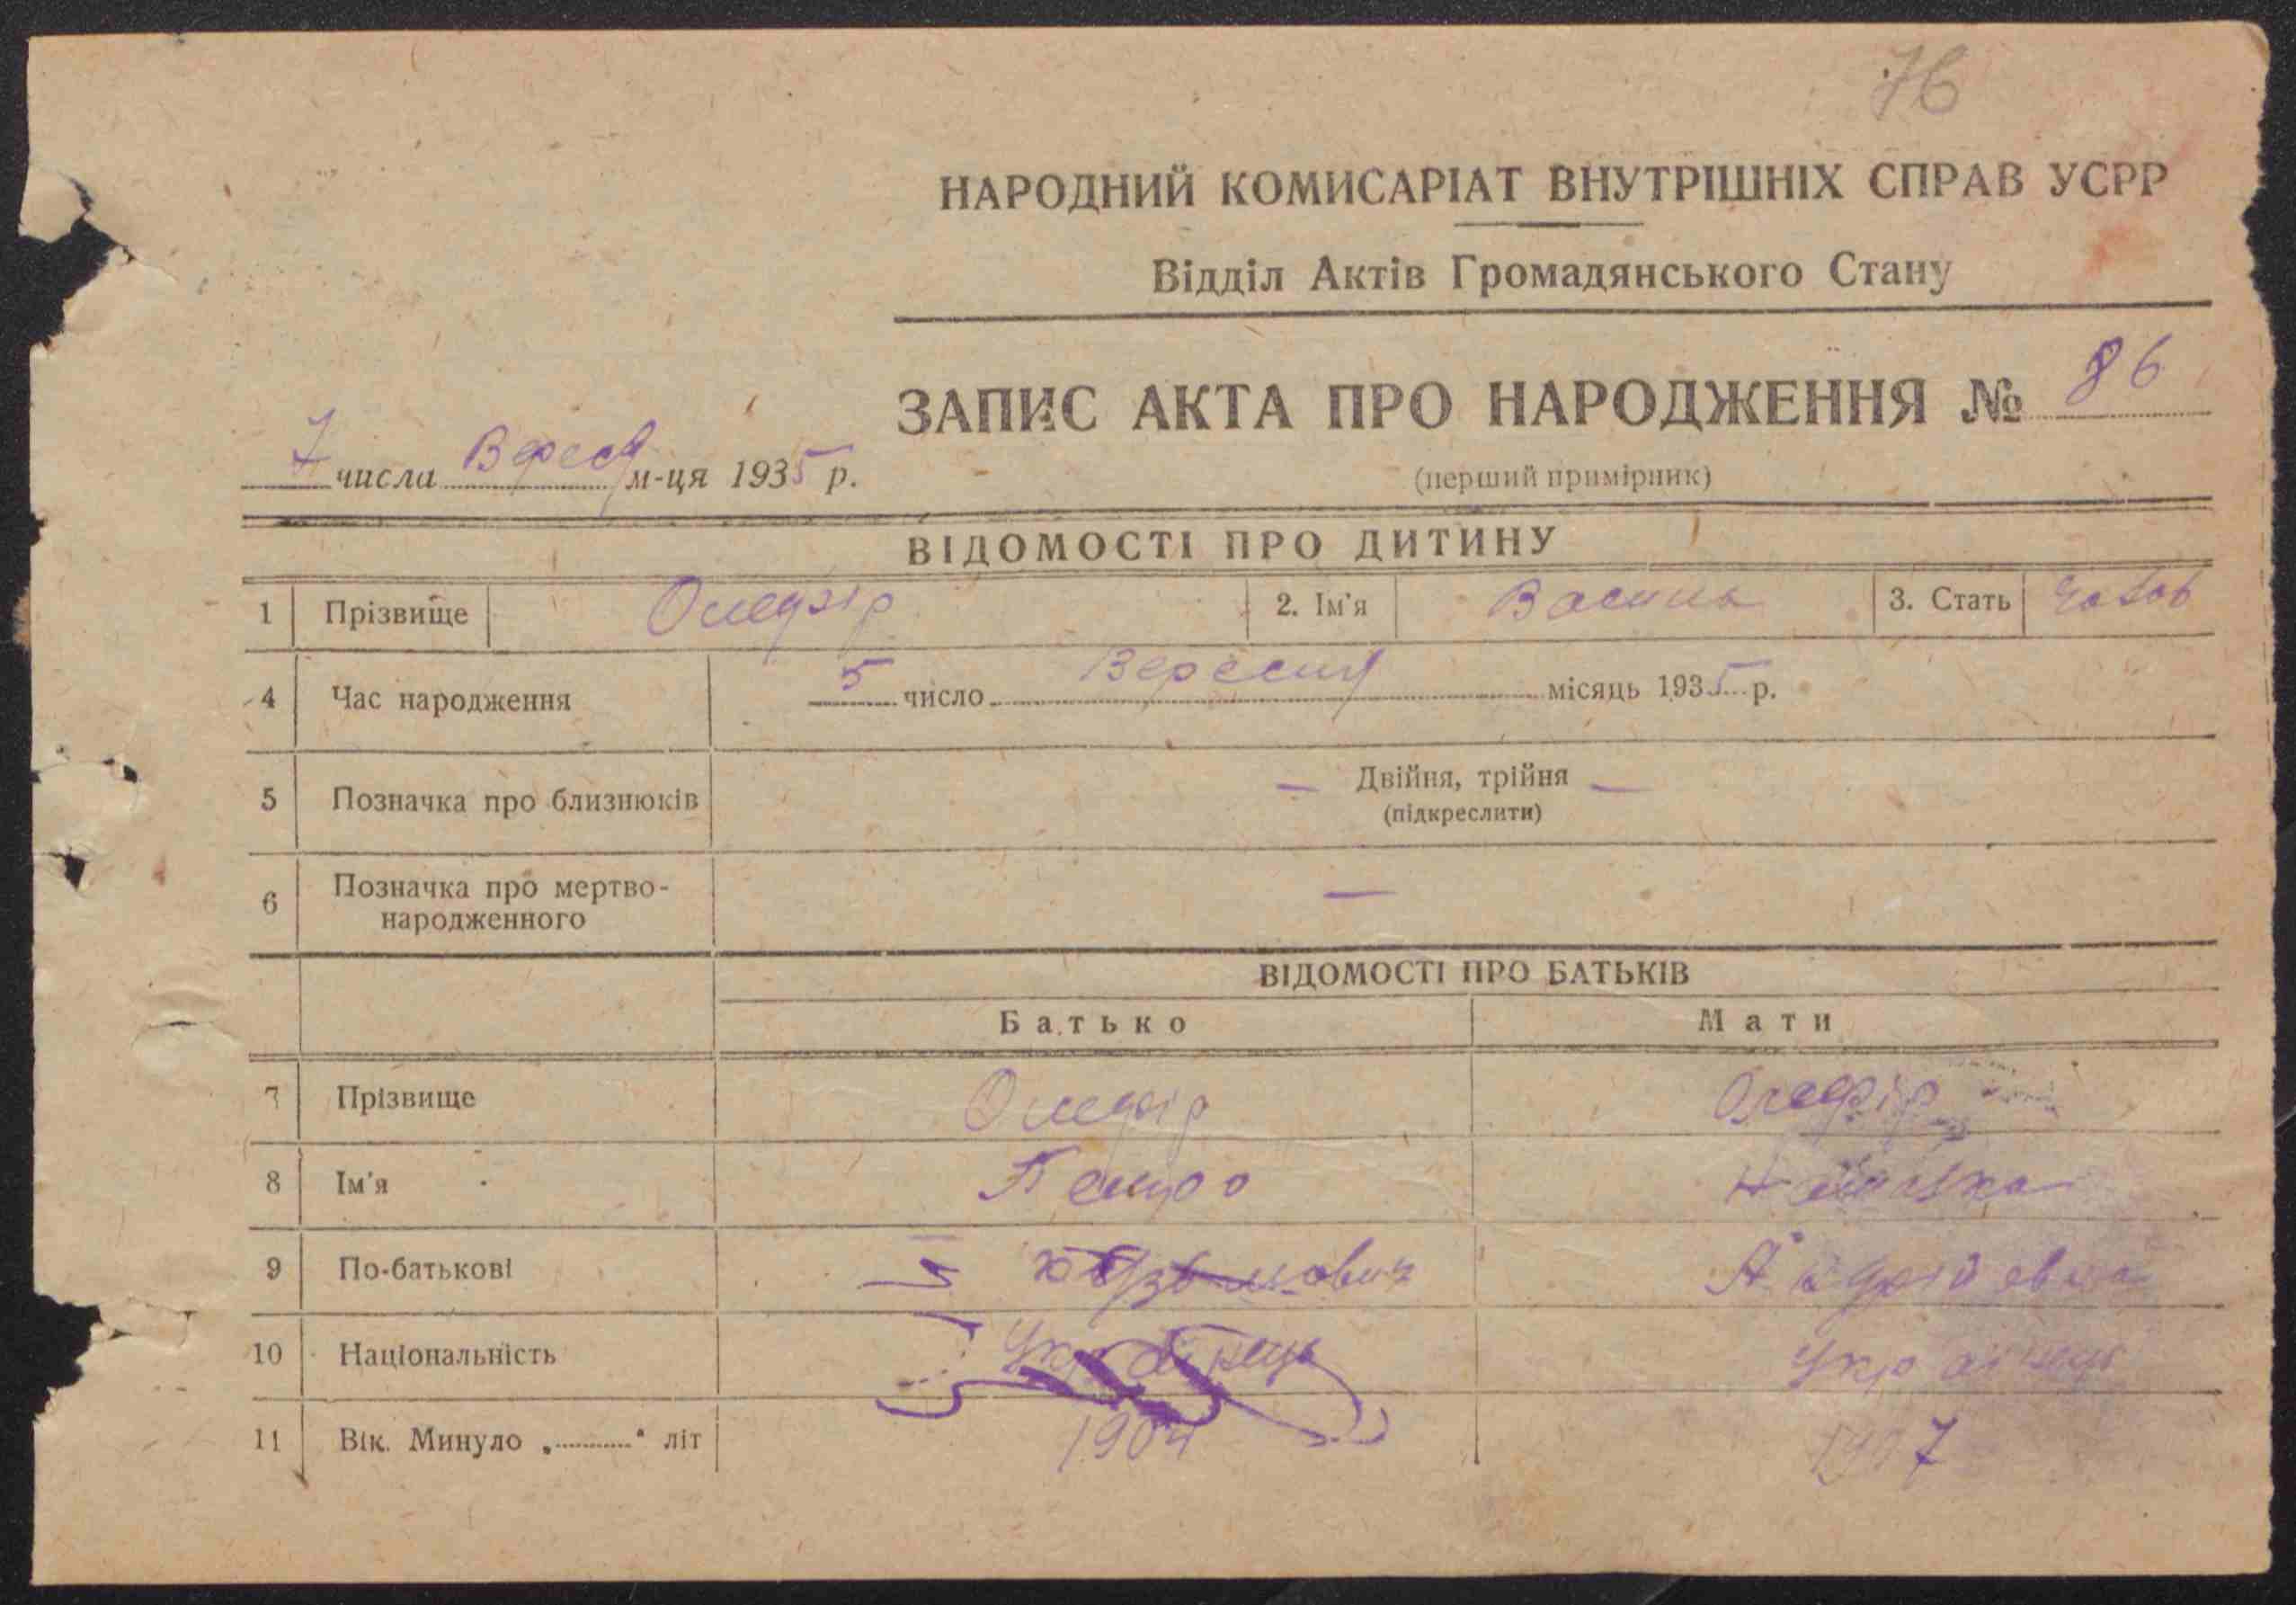 76
НАРОДНИЙ КОМИСАРІАТ ВНУТРІШНІХ СПРАВ УСРР
Відділ Актів Громадянського Стану
ЗАПИС АКТА ПРО НАРОДЖЕННЯ № 86
7 числа Вересня м-ця 1935 р.
(перший примірник)
ВІДОМОСТІ ПРО ДИТИНУ
1 Прізвище Олефір 2. Ім'я Василь 3. Стать
4 Час народження 5 число Вересня місяць 1935 р.
5 Позначка про близнюків — Двійня, трійня —
(підкреслити)
6 Позначка про мертво-
народженного —
ВІДОМОСТІ ПРО БАТЬКІВ
Батько Мати
7 Прізвище Олефір Олефір
8 Ім'я Петро
9 По-батькові Андрієвна
10 Національність Українець Українець
11 Вік. Минуло „ “ літ 1904 1907